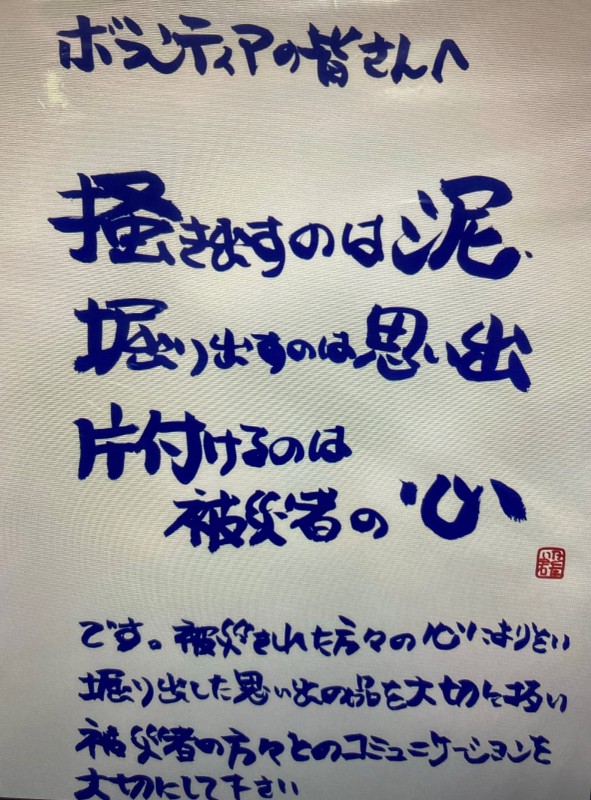 ボランティアの皆さんへ
掻き出すのは泥、
掘り出すのは思い出
片付けるのは
被災者の心
です。被災された方々の心によりそい
掘り出した思い出の品を大切に扱い
被災者の方々とのコミュニケーションを
大切にして下さい